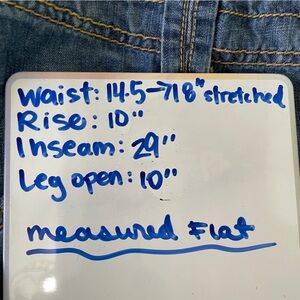 Waist: 14.5→18" stretched
Rise: 10"
Inseam: 29"
Leg open: 10"
measured Flat